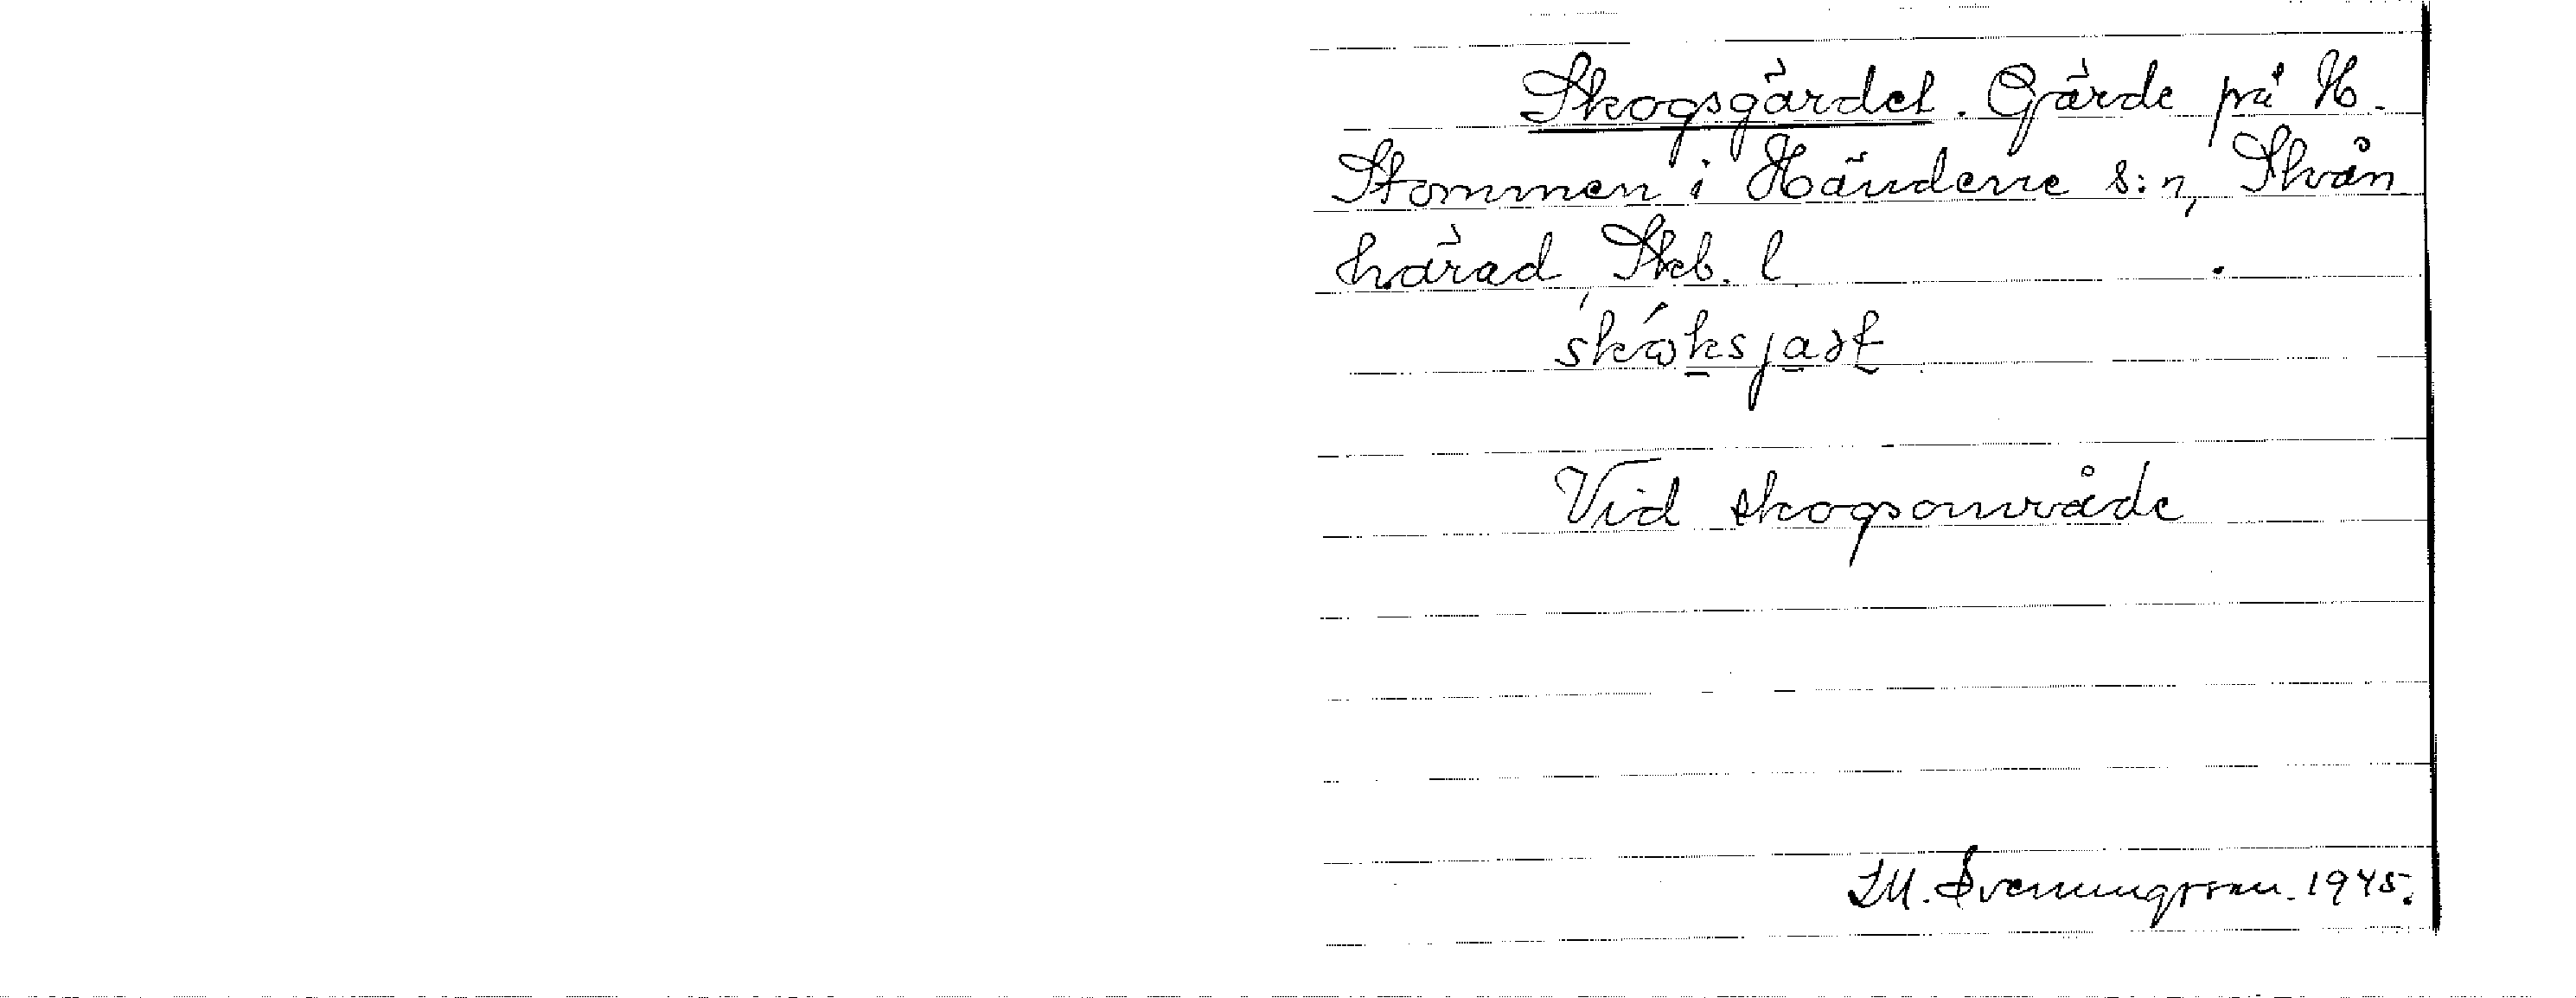 Skogsgärdet. Gärde på H.
Stommen i Händene s:n, Skån
härad, Skb. l.
Vid skogsområde
I M. Svenungsson. 1945.